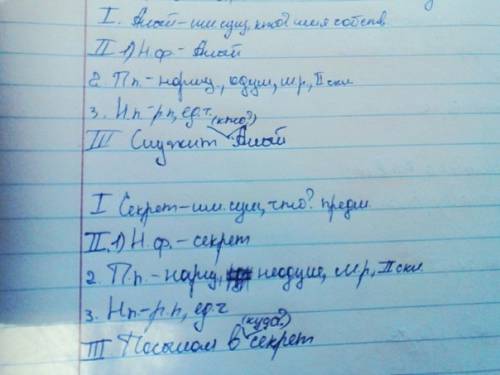 I. Алый-им.сущ, кто? имя собств
II 1) Н.ф.- Алый
2. П.п.- нариц, одуш, м.р, II скл
3. Н.п-р.п, ед.ч.
(кто?)
III Служит Алый
I Секрет-им.сущ, что? предм
II.1) Н.ф.- секрет
2. П.п.- нариц, неодуш, м.р, II скл
3. Н.п-р.п, ед.ч
(куда?)
III Посылал в секрет